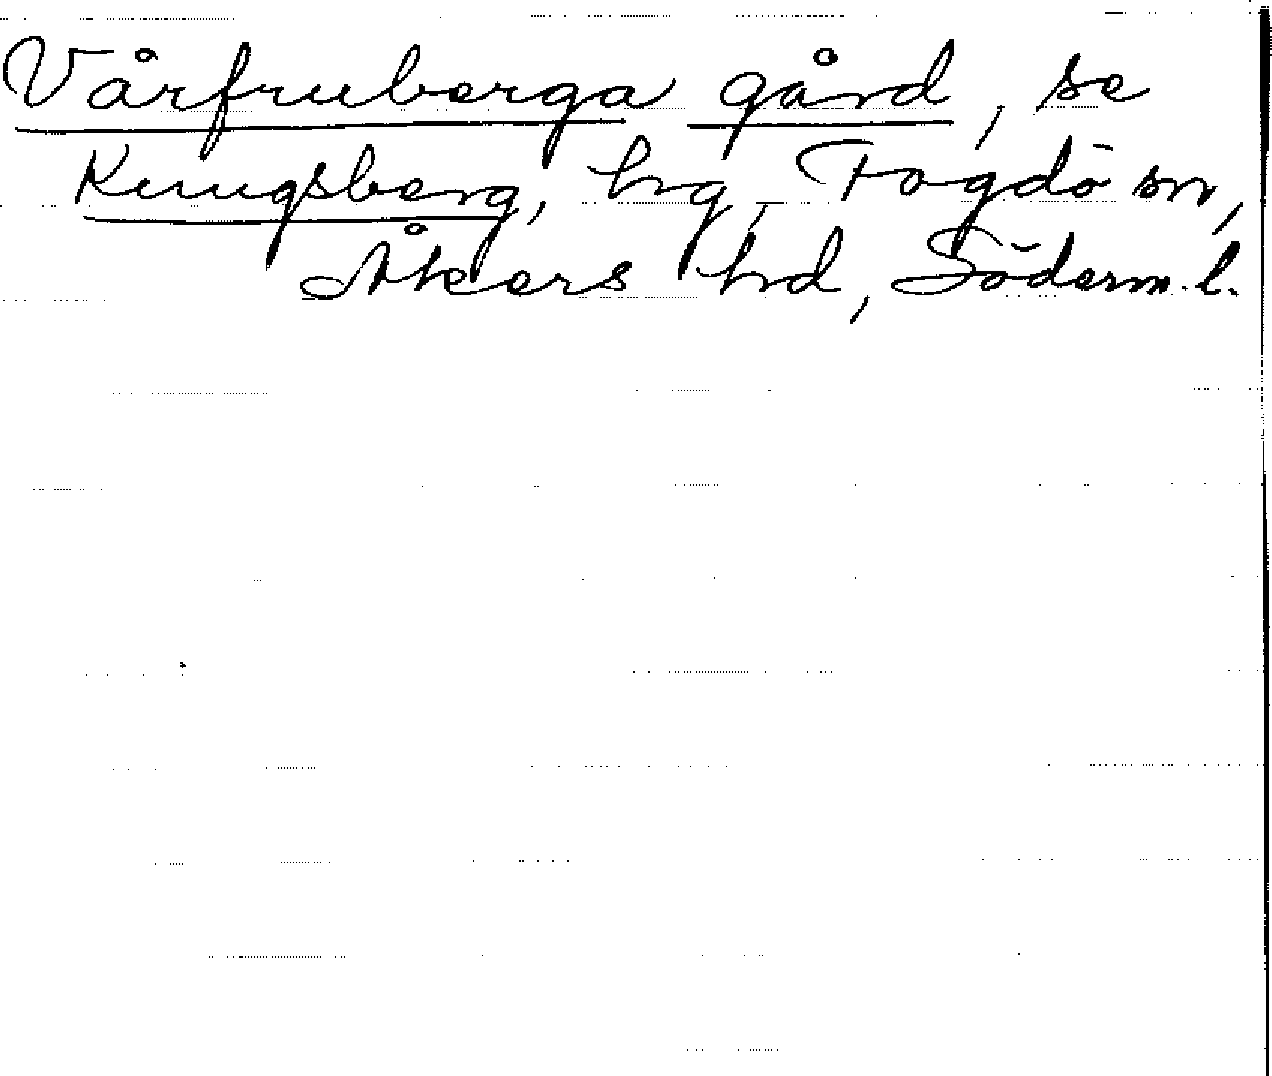 Vårfruberga gård, se
Kungsberg, hg, Fogdö sn,
Åkers hd, Söderm. l.